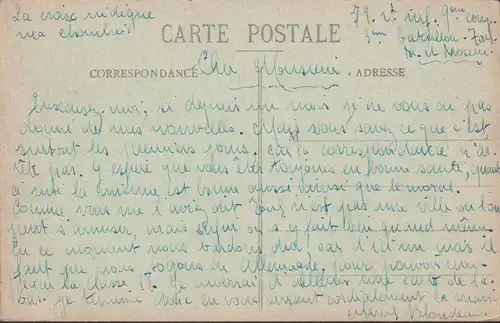 La croix indique
ma chambre.
79 rt inf. 9ème comp
3ème bataillon Toul
M. et Moselle
CARTE POSTALE
CORRESPONDANCE
ADRESSE
Cher Monsieur
Excusez-moi, si depuis un mois je ne vous ai pas
donné de mes nouvelles. Mais vous savez ce que c'est
surtout les premiers jours, car la correspondance n'ar-
rête pas. J'espère que vous êtes toujours en bonne santé, quant
à moi la mienne est bonne aussi ainsi que le moral.
Comme vous me l'aviez dit Toul n'est pas une ville où l'on
peut s'amuser, mais enfin on s'y fait bien quand même.
En ce moment nous bardons dur, car d'ici un mois il
faut que nous soyons en Allemagne, pour pouvoir
la classe 17. Je
Je termine donc en vous serrant cordialement la main
Blondeau